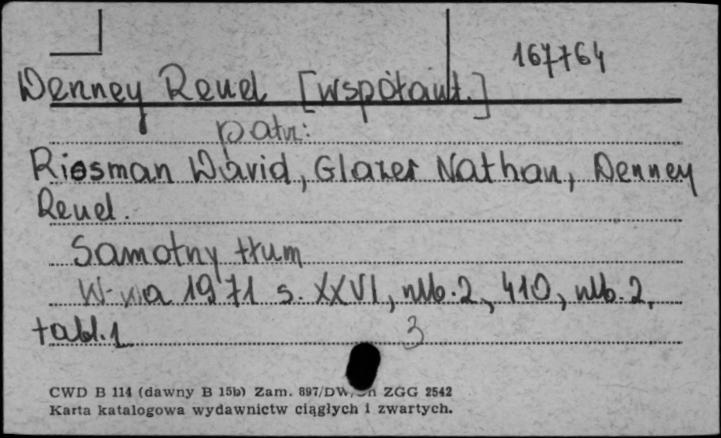 167764
Denney Reuel [współaut.]
patrz:
Riesman David, Glazer Nathan, Denney
Reuel.
Samotny tłum
W-wa 1971 s. XXVI, nlb. 2, 410, nlb. 2,
tabl. 1
3
CWD B 114 (dawny B 15b) Zam. 897/DW, ZGG 2542
Karta katalogowa wydawnictw ciągłych i zwartych.